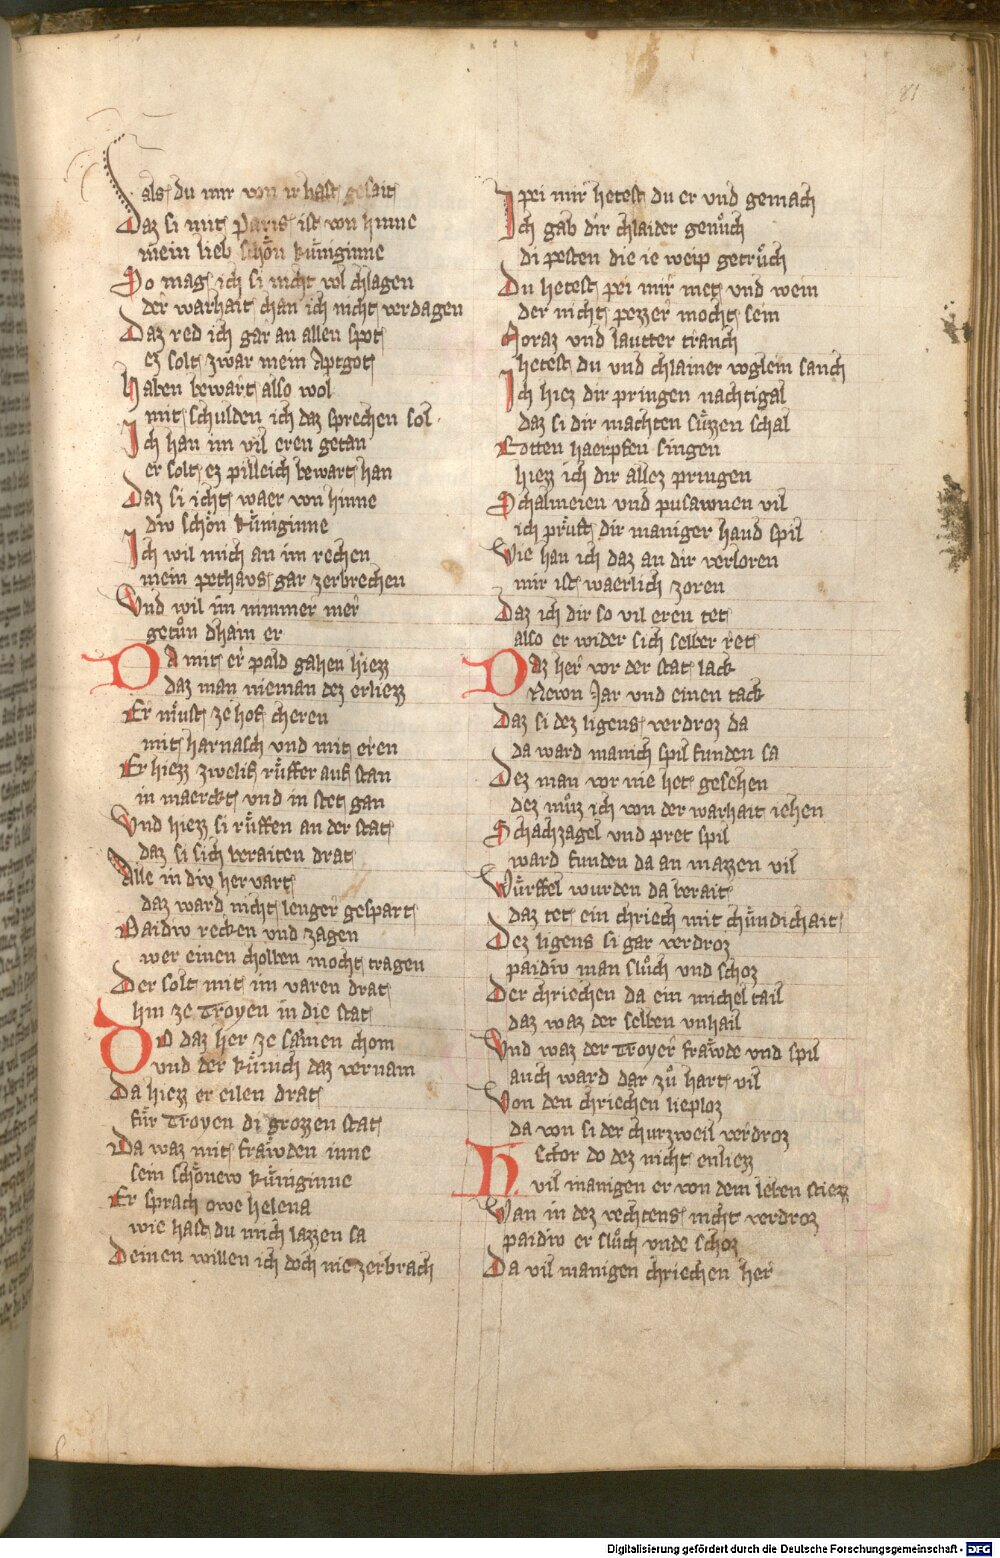 81
als du mir von ir hast gesait
Daz si mit Paris ist von hinne
mein lieb schoͤn kuͤniginne
So mag ich si nicht wol chlagen
der warhait chan ich nicht verdagen
Daz red ich gar an allen spot
ez solt zwar mein Aptgot
haben bewart also wol
mit schulden ich daz sprechen sol
Ich han im vil eren getan
er solt ez pilleich bewart han
Daz si icht waer von hinne
div schoͤn kuͤniginne
Ich wil mich an im rechen
mein pethavs gar zerbrechen
Vnd wil im nimmer mer
getuͦn dhain er
DA mit er pald gahen hiezz
daz man nieman dez erliezz
Er muͤst ze hof cheren
mit harnasch vnd mit eren
Er hiezz zwelif ruͤffer auf stan
in maerckt vnd in stet gan
Vnd hiezz si ruͤffen an der stat
daz si sich beraiten drat
Alle in div hervart
daz ward nicht lenger gespart
Paidiv recken vnd zagen
wer einen cholben mocht tragen
Der solt mit im varen drat
hin ze Troyen in die stat
DO daz her ze samen chom
vnd der kuͤnich daz vernam
Da hiezz er eilen drat
fuͤr Troyen di grozzen stat
Da waz mit fraͤwden inne
sein schoͤnew kuͤniginne
Er sprach owe helena
wie hast du mich lazzen sa
Deinen willen ich doch nie zerbrach
pei mir hetest du er vnd gemach
Ich gab dir chlaider genuͦch
di pesten die ie weip getruͦch
Du hetest pei mir met vnd wein
der nicht pezzer mocht sein
Moraz vnd lautter tranch
hetest du vnd chlainer voglein sanch
Ich hiez dir pringen nachtigal
daz si dir machten suͤzzen schal
Rotten haerpfen singen
hiezz ich dir allez pringen
Schalmeien vnd pusawnen vil
ich pruͤft dir maniger hand spil
Wie han ich daz an dir verloren
mir ist waerlich zoren
Daz ich dir so vil eren tet
also er wider sich selber ret
DAz her vor der stat lack
Newn Jar vnd einen tack
Daz si dez ligens verdroz da
da ward manich spil funden sa
Dez man vor nie het gesehen
dez muͦz ich von der warhait iehen
Schachzagel vnd pret spil
ward funden da an mazzen vil
Wuͤrffel wurden da berait
daz tet ein chriech mit chuͤndichait
Dez ligens si gar verdroz
paidiv man sluͦch vnd schoz
Der chriechen da ein michel tail
daz waz der selben vnhail
Vnd waz der Troyer fraͤwde vnd spil
auch ward dar zuͦ hart vil
Von den chriechen lieploz
da von si der churzweil verdroz
Hector do dez nicht enliezz
vil manigen er von dem leben stiezz
Wan in dez vechtens nicht verdroz
paidiv er sluͦch vnde schoz
Da vil manigen chriechen her
Digitalisierung gefördert durch die Deutsche Forschungsgemeinschaft - DFG